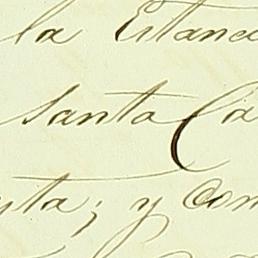 la Estanc
Santa Ca
ta; y Com